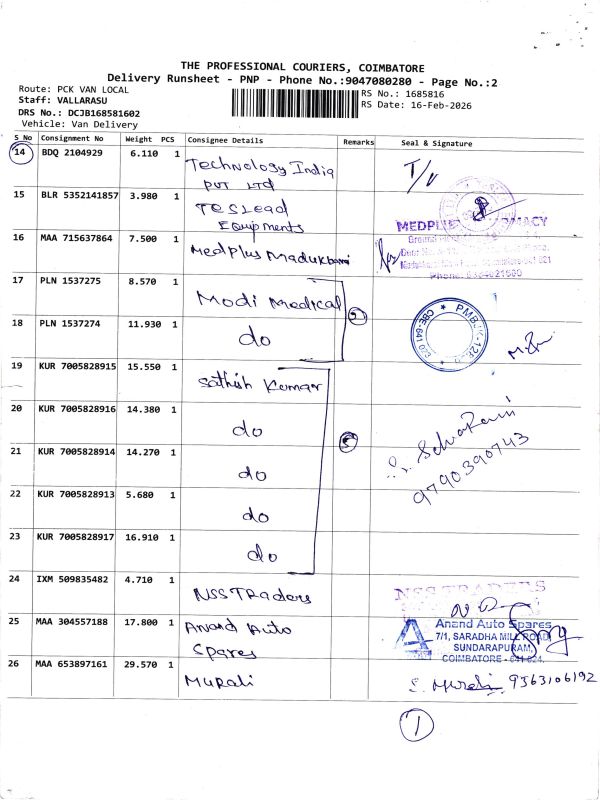 THE PROFESSIONAL COURIERS, COIMBATORE
Delivery Runsheet - PNP - Phone No.:9047080280 - Page No.:2
Route: PCK VAN LOCAL
Staff: VALLARASU
DRS No.: DCJB168581602
Vehicle: Van Delivery
RS No.: 1685816
RS Date: 16-Feb-2026
S No Consignment No Weight PCS Consignee Details Remarks Seal & Signature
14 BDQ 2104929 6.110 1 Technology India T/U
PVT LTD
15 BLR 5352141857 3.980 1 Teslead
Equipments
16 MAA 715637864 7.500 1 MedPlus Madukkarai
MEDPLUS PHARMACY
17 PLN 1537275 8.570 1 Modi Medical
18 PLN 1537274 11.930 1 do
19 KUR 7005828915 15.550 1 Sathish Kumar
20 KUR 7005828916 14.380 1 do
21 KUR 7005828914 14.270 1 do
9790390743
22 KUR 7005828913 5.680 1 do
23 KUR 7005828917 16.910 1 do
24 IXM 509835482 4.710 1 NSS Traders
NSS TRADERS
25 MAA 304557188 17.800 1 Anand Auto
Spares
Anand Auto Spares
7/1, SARADHA MILL ROAD,
SUNDARAPURAM,
COIMBATORE - 641 024.
26 MAA 653897161 29.570 1 Murali S. Murali 9363106192
1